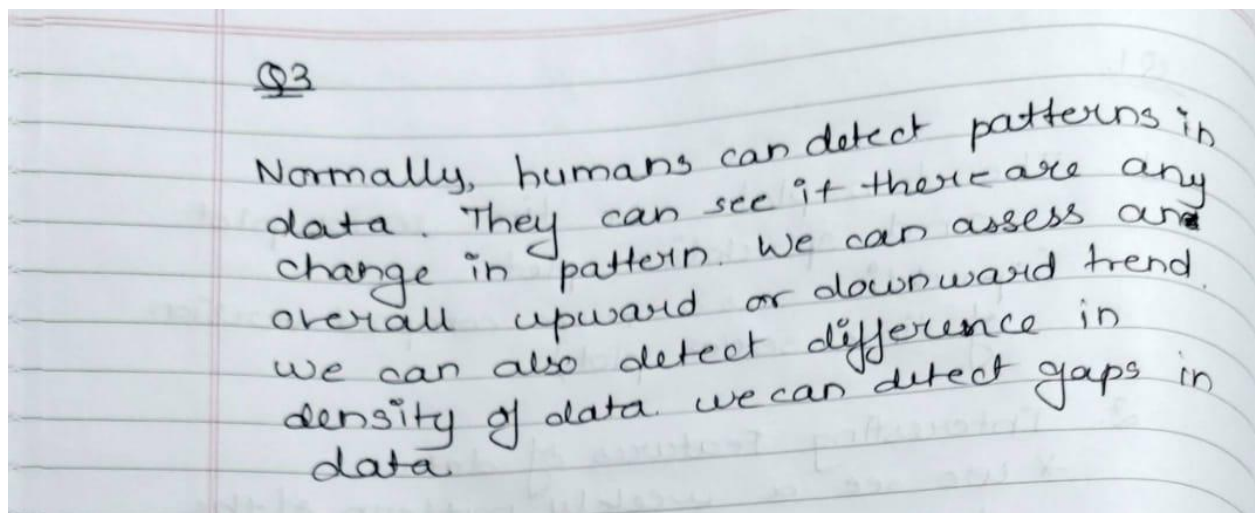 Q3
Normally, humans can detect patterns in
data. They can see if there are any
change in pattern. We can assess an
overall upward or downward trend.
we can also detect difference in
density of data. we can detect gaps in
data.